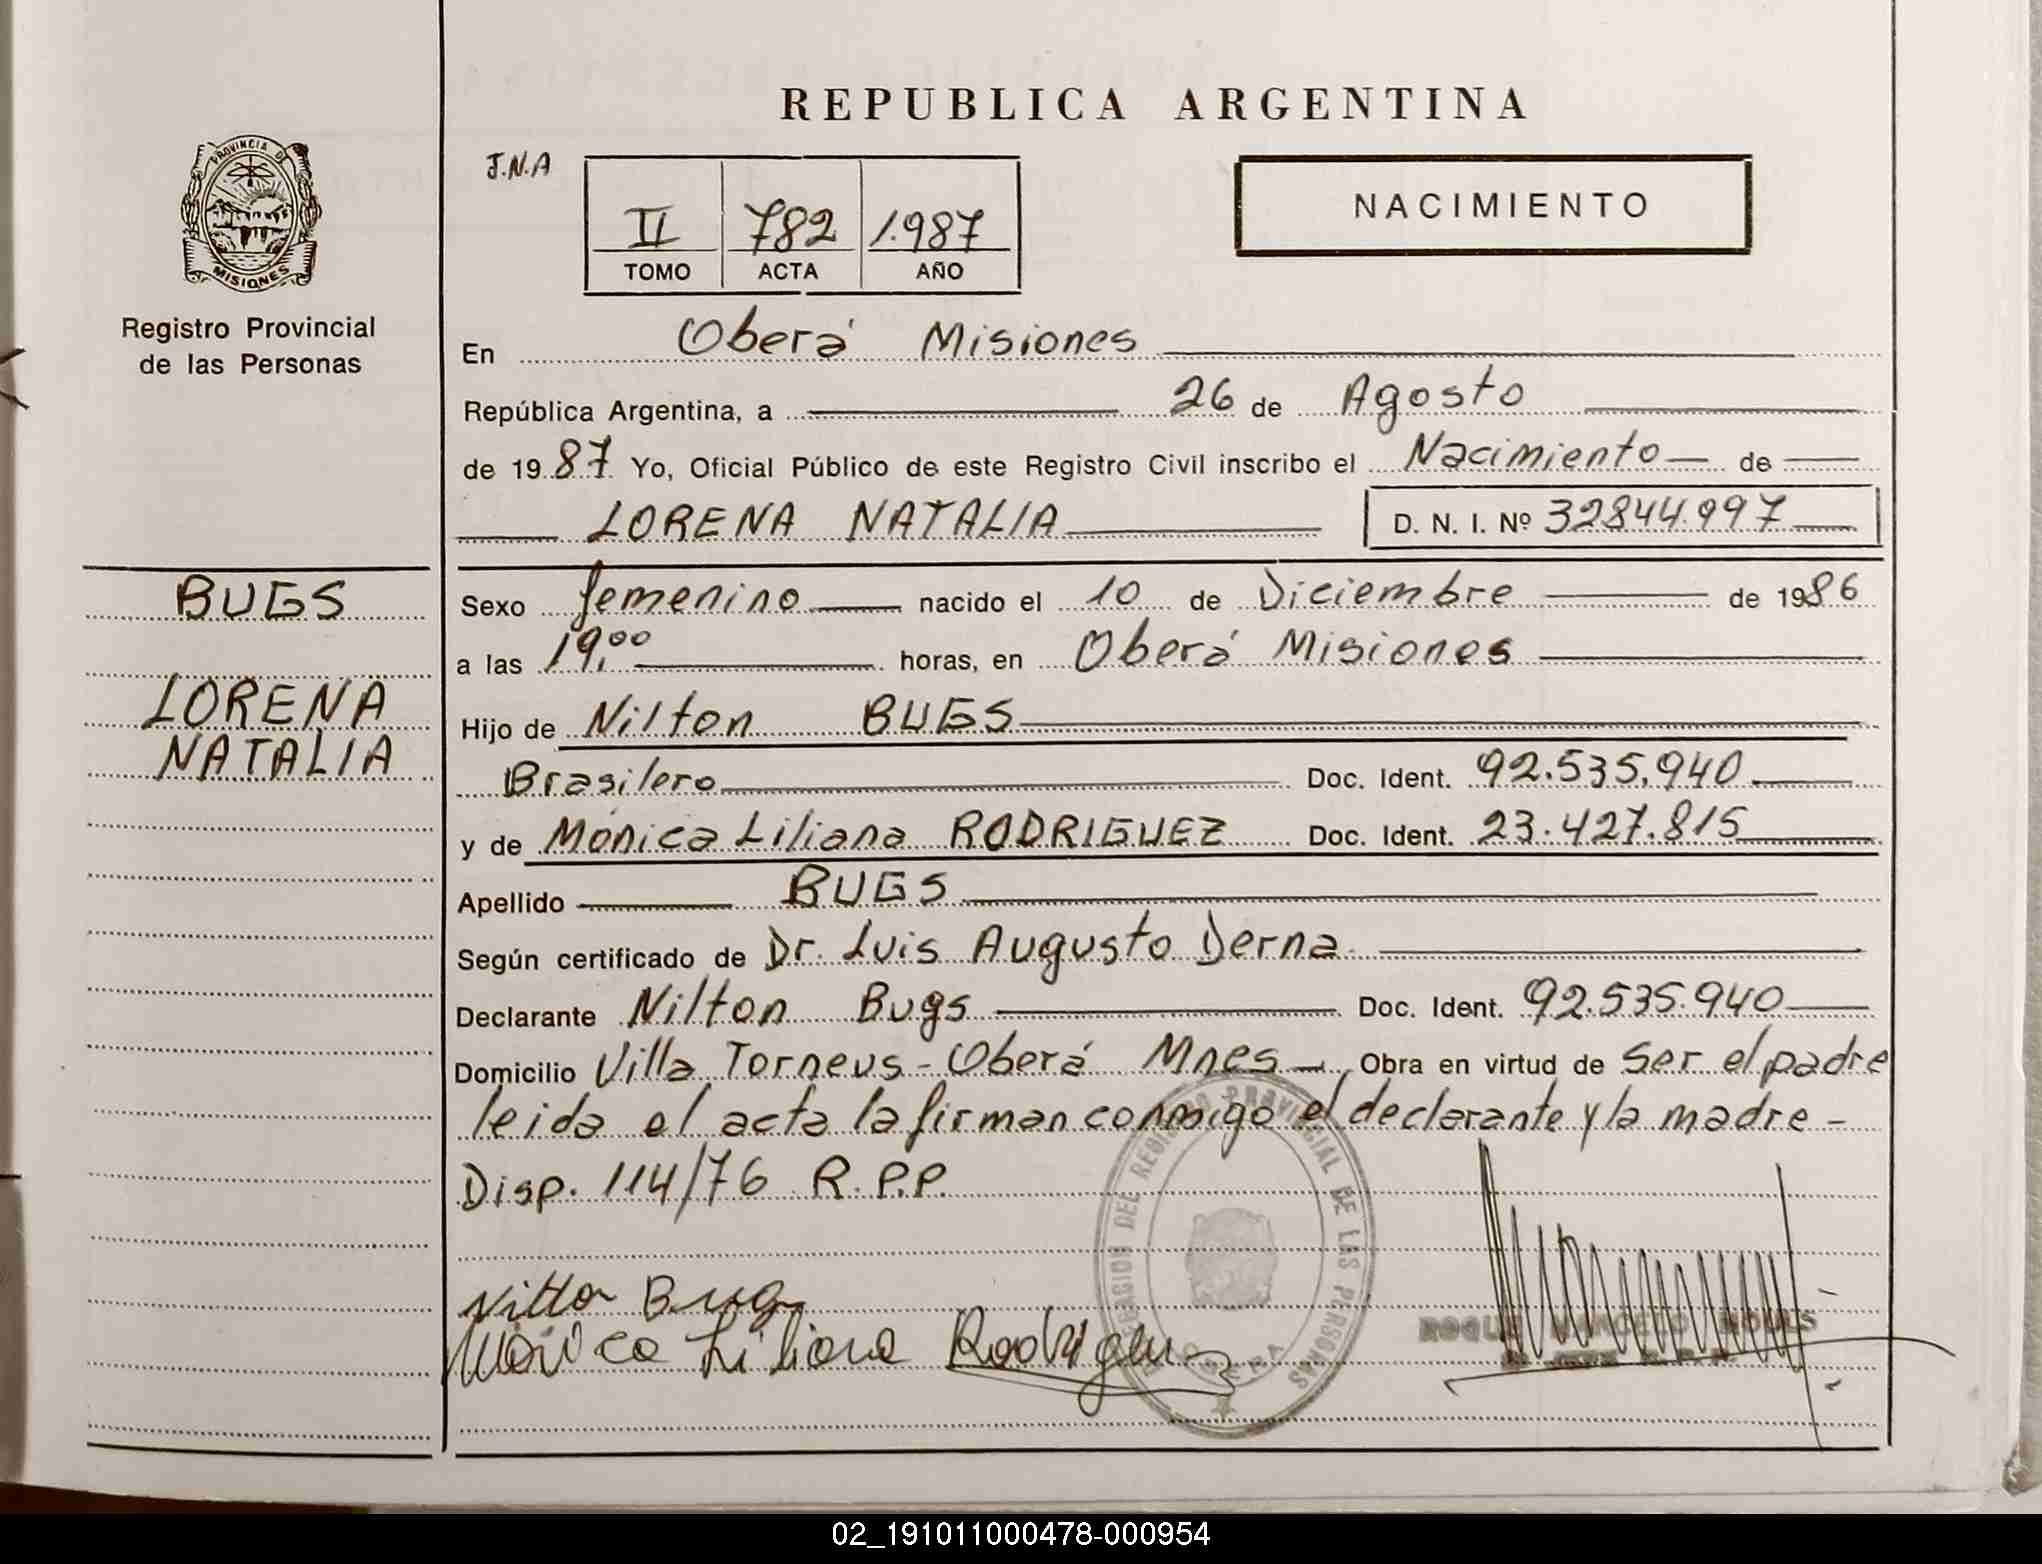 REPUBLICA ARGENTINA
PROVINCIA DE
MISIONES
Registro Provincial
de las Personas
J.N.A
II 782 1.987
TOMO ACTA AÑO
NACIMIENTO
En Oberá Misiones
República Argentina, a 26 de Agosto
de 1987 Yo, Oficial Público de este Registro Civil inscribo el Nacimiento de
LORENA NATALIA D. N. I. Nº 32844.997
BUGS
LORENA
NATALIA
Sexo femenino nacido el 10 de Diciembre de 1986
a las 19,00 horas, en Oberá Misiones
Hijo de Nilton BUGS
Brasilero Doc. Ident. 92.535.940
y de Mónica Liliana RODRIGUEZ Doc. Ident. 23.427.815
Apellido BUGS
Según certificado de Dr. Luis Augusto Derna
Declarante Nilton Bugs Doc. Ident. 92.535.940
Domicilio Villa Torneus - Oberá Mnes Obra en virtud de ser el padre
leida el acta la firman conmigo el declarante y la madre -
Disp. 114/76 R.P.P.
DEL REGISTRO PROVINCIAL DE LAS PERSONAS
OBERA
Nilton Bugs
Monica Liliana Rodriguez
ROQUE MARCELO
02_191011000478-000954